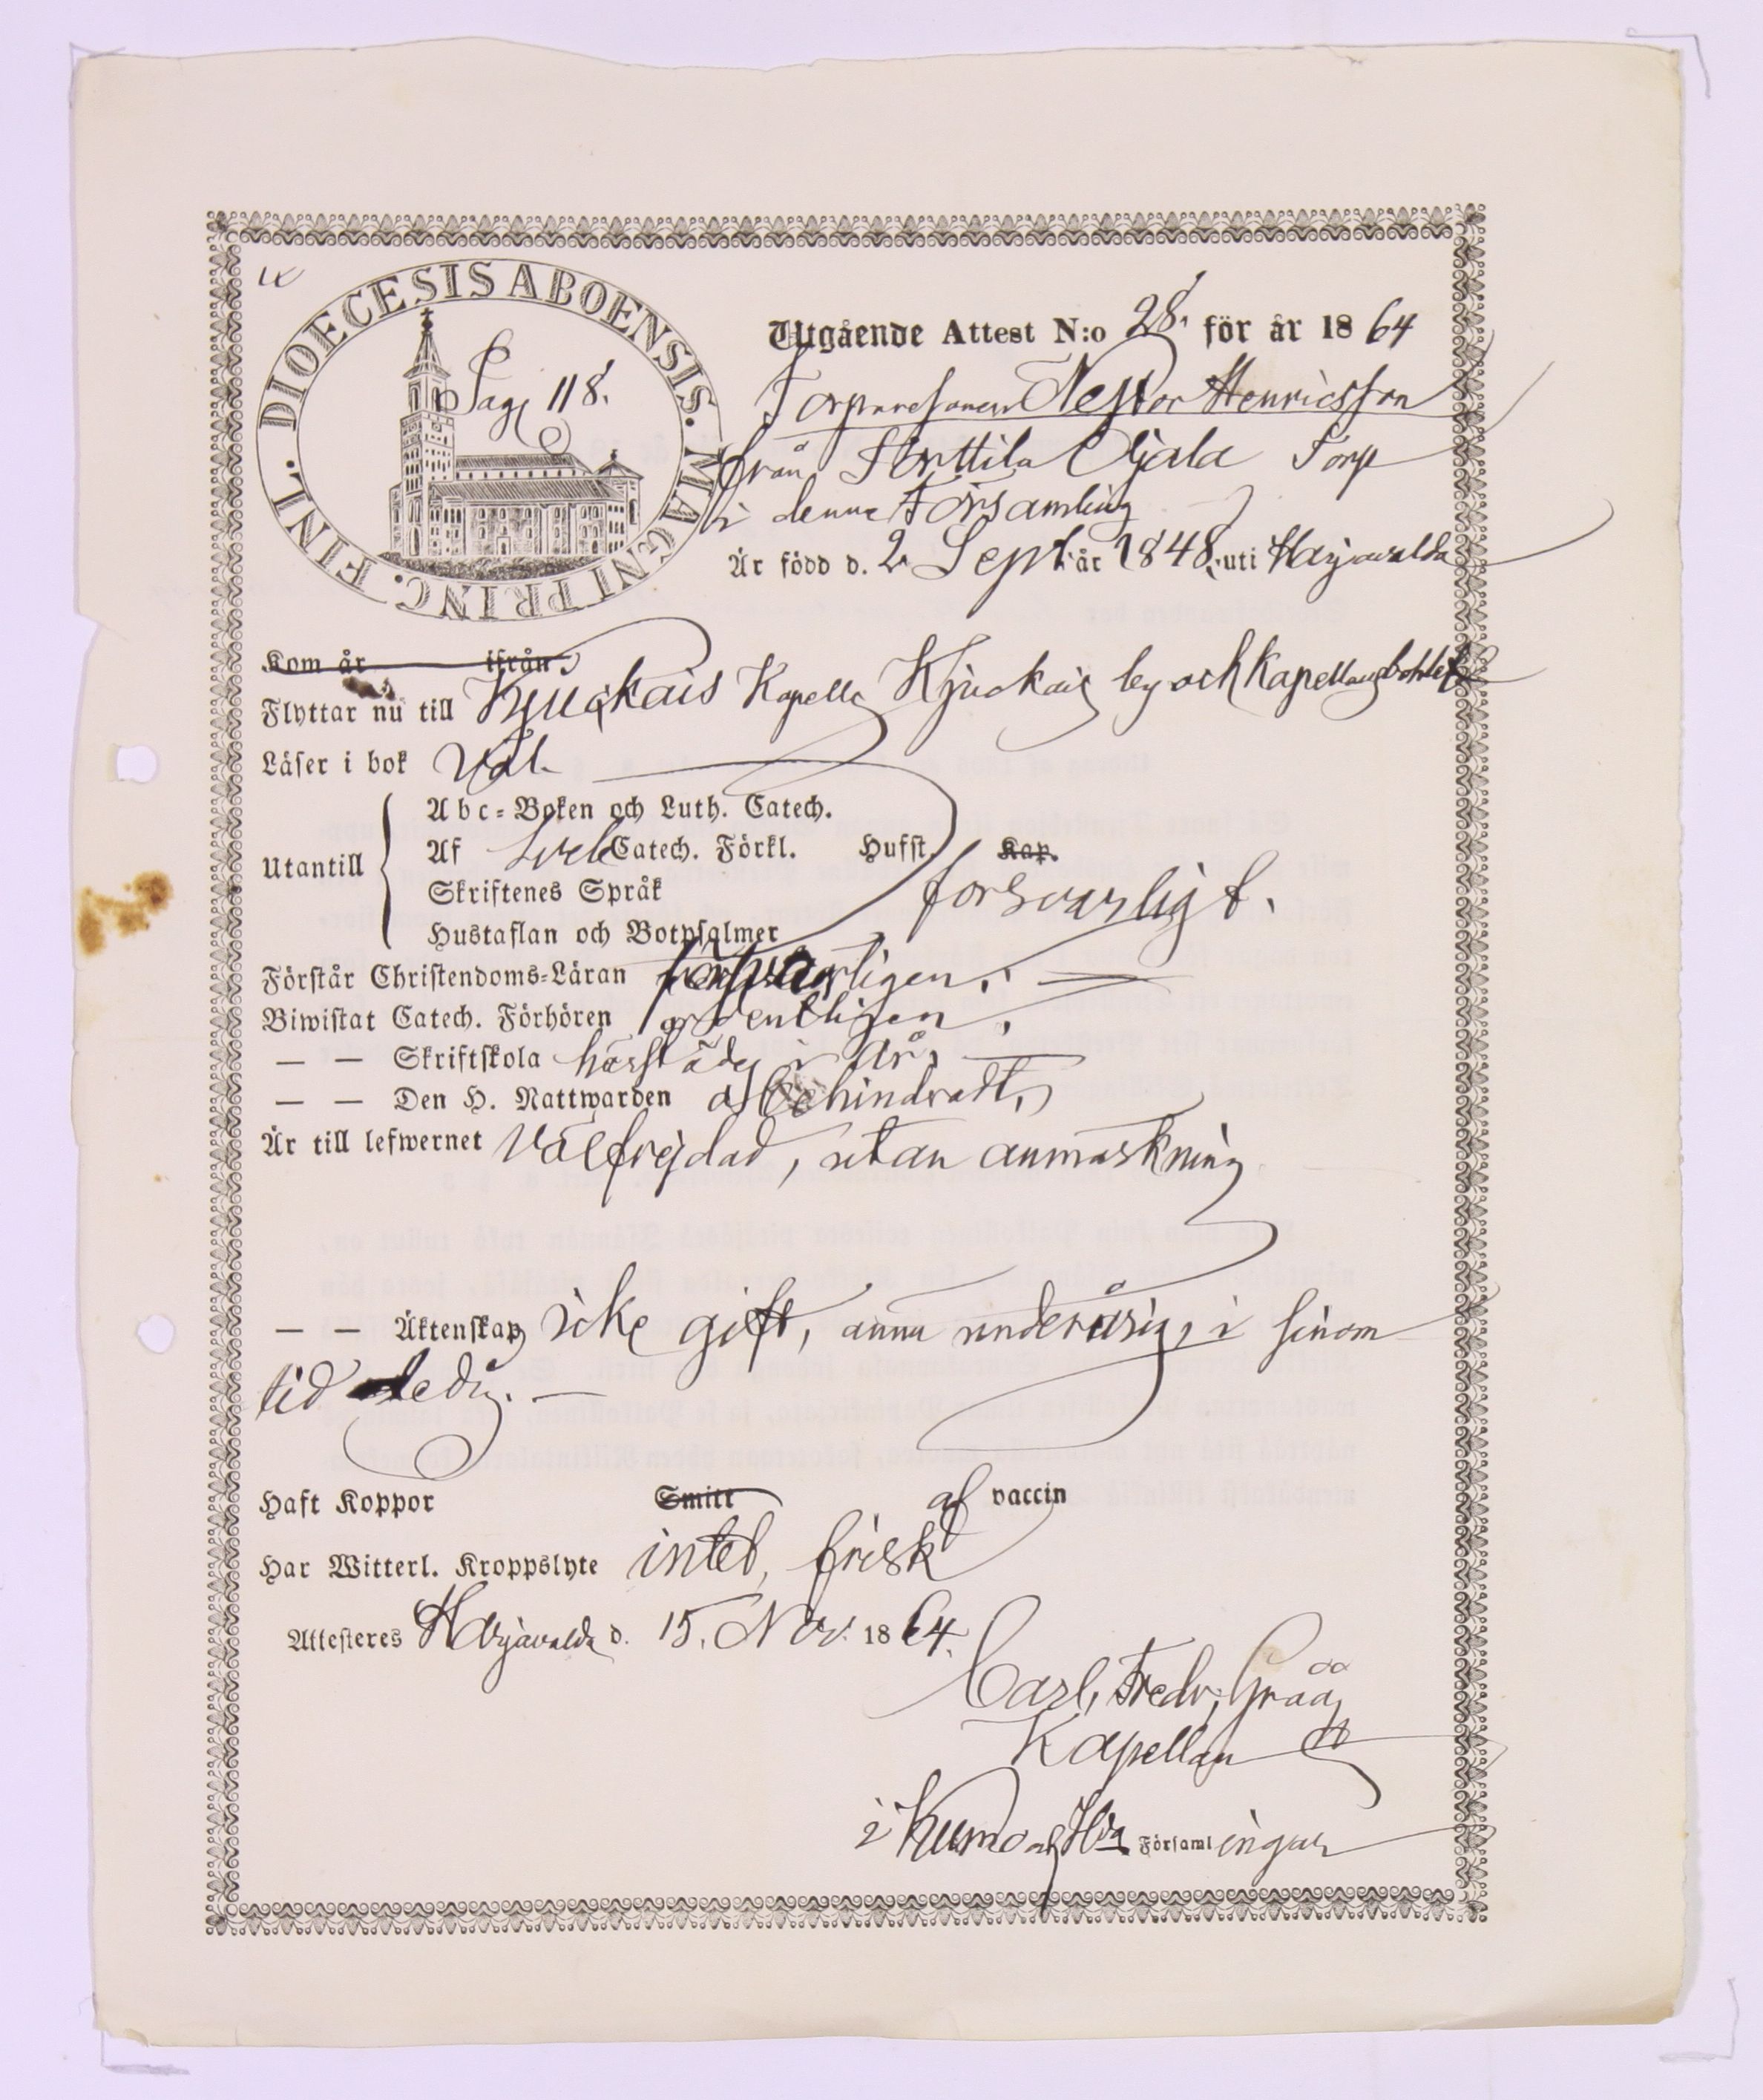 DIOECESIS ABOENSIS. MAGNI PRINC. FINL.
Pag 118.
Utgående Attest N:o 28. för år 1864
Torparesonen Nestor Henricsson
från Torttila Ojala Torp
i denna Församling
Är född d. 2 Sept. år 1848. uti Harjavalda
Kom år ifrån
Flyttar nu till Kjuckais Kapell, Kjuckais by och Kapellansbohlet
Läser i bok väl.
Utantill
Abc-Boken och Luth. Catech.
Af Sveb Catech. Förkl. Husst. Kap.
Skriftenes Språk försvarligt.
Hustaflan och Botpsalmer
Förstår Christendoms-Läran försvarligen.
Biwistat Catech. Förhören ordentligen.
— — Skriftskola härstädes i år.
— — Den H. Nattwarden obehindradt.
Är till lefwernet välfrejdad, utan anmärkning
— — Äktenskap icke gift, ännu underårig, i sinom
tid ledig. —
Haft Koppor Smitt af vaccin
Har Witterl. Kroppslyte intet, frisk
Attesteres Harjavalda d. 15. Nov. 1864.
Carl Fredr. Gråå
Kapellan
i Kumo och Hva Församlingar